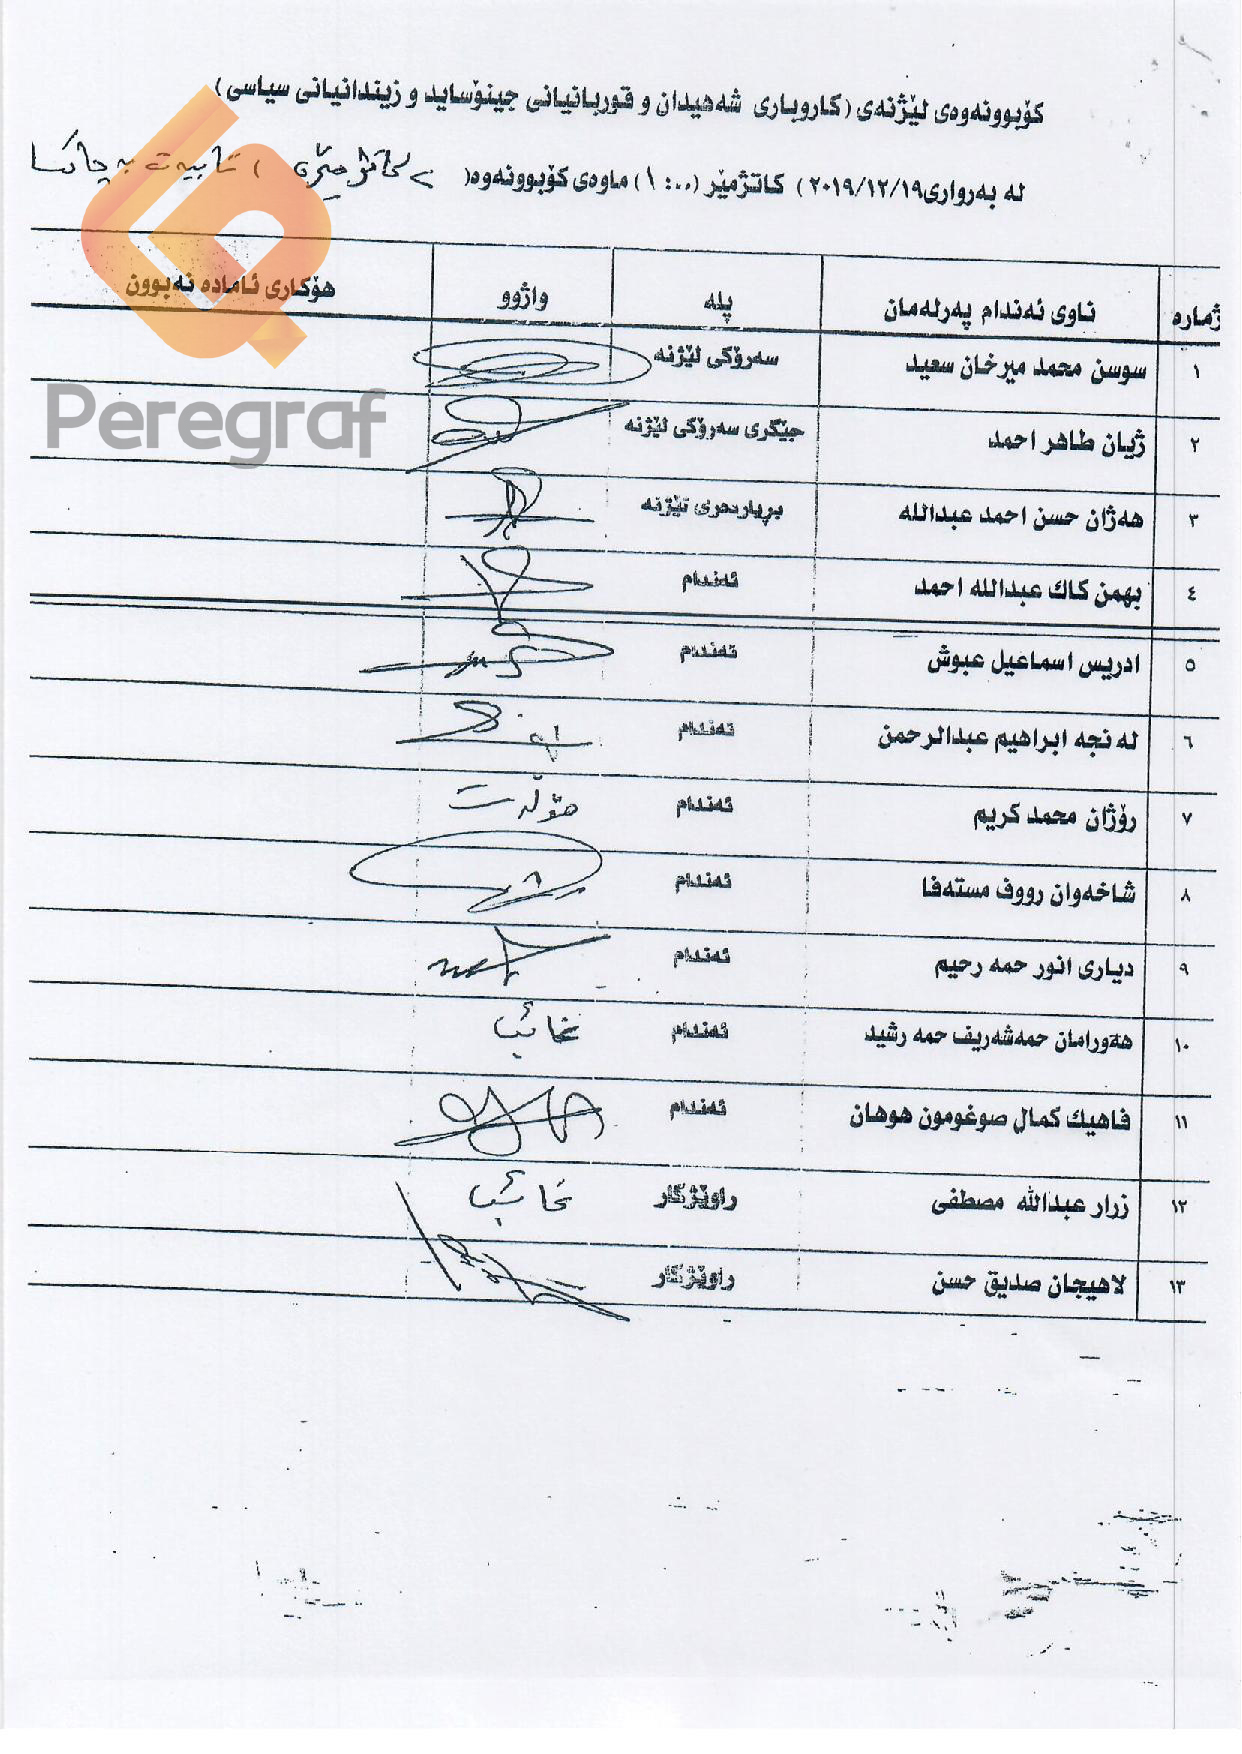 كۆبوونەوەی لێژنەی (كاروباری شەهیدان و قوربانیانی جینۆساید و زیندانیانی سیاسی)
لە بەرواری٢٠١٩/١٢/١٩) كاتژمێر (١:٠٠) ماوەی كۆبوونەوە( ٢ كاتژمێری ) تایبەت بە چاكسا
ژمارە ناوی ئەندام پەرلەمان پلە واژوو هۆكاری ئامادە نەبوون
١ سوسن محمد میرخان سعید سەرۆكی لێژنە
٢ ژیان طاهر احمد جێگری سەرۆكی لێژنە
٣ هەژان حسن احمد عبدالله بڕیاردەری لێژنە
٤ بهمن كاك عبدالله احمد ئەندام
٥ ادریس اسماعیل عبوش ئەندام
٦ لە نجە ابراهیم عبدالرحمن ئەندام
٧ رۆژان محمد كریم ئەندام مۆڵەت
٨ شاخەوان رووف مستەفا ئەندام
٩ دیاری انور حمە رحیم ئەندام
١٠ هەورامان حمەشەریف حمە رشید ئەندام غائب
١١ فاهیك كمال صوغومون هوهان ئەندام
١٢ زرار عبدالله مصطفی راوێژكار غائب
١٣ لاهیجان صدیق حسن راوێژكار
Peregraf